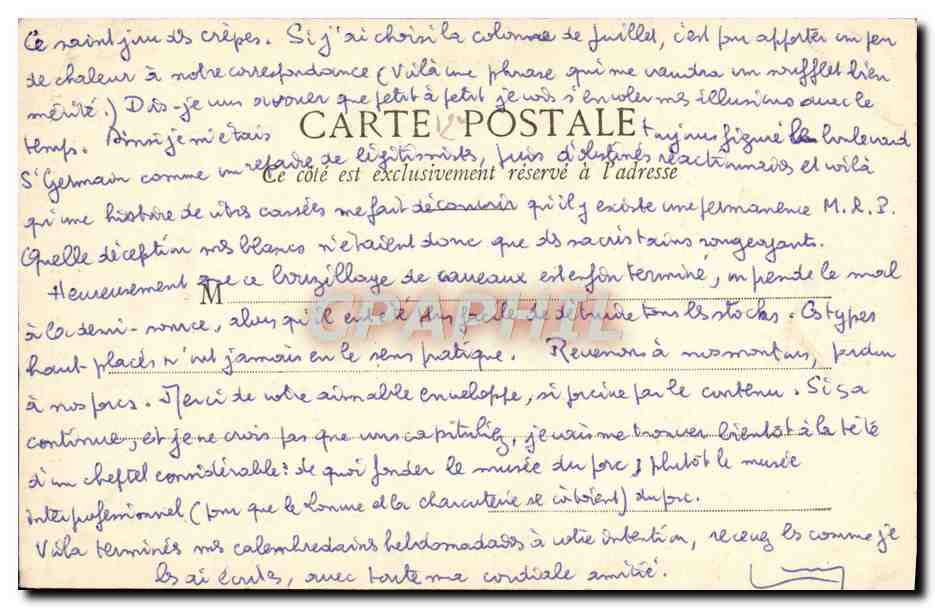 Ce saint jour des crêpes. Si j'ai choisi la colonne de Juillet, c'est pour apporter un peu
de chaleur à notre correspondance (Voilà une phrase qui me vaudra un soufflet bien
mérité.) Dois-je vous avouer que petit à petit je vois s'envoler mes illusions avec le
CARTE POSTALE
temps. Ainsi je m'étais toujours figuré le boulevard
St Germain comme un repaire de légitimistes, puis d'obstinés réactionnaires et voilà
Ce côté est exclusivement réservé à l'adresse
qu'une histoire de vitres cassées me fait découvrir qu'il y existe une permanence M.R.P.
Quelle déception mes blancs n'étaient donc que des sacristains rougeoyants.
Heureusement que ce bousillage de carreaux est enfin terminé, on pende le mal
M
CPAPHIL
à la demi-source, alors qu'il eut été plus facile de détruire tous les stocks. Ces types
haut-placés n'ont jamais eu le sens pratique. Revenons à nos moutons, pardon
à nos porcs. Merci de votre aimable enveloppe, si porcine par le contenu. Si ça
continue, et je ne crois pas que vous capituliez, je vais me trouver bientôt à la tête
d'un cheptel considérable: de quoi fonder le musée du porc; plutôt le musée
interprofessionnel (pour que le lonure et la charcuterie se côtoient) du porc.
Voilà terminés mes calembredaines hebdomadaires à votre intention, recevez les comme je
les ai écrites, avec toute ma cordiale amitié.